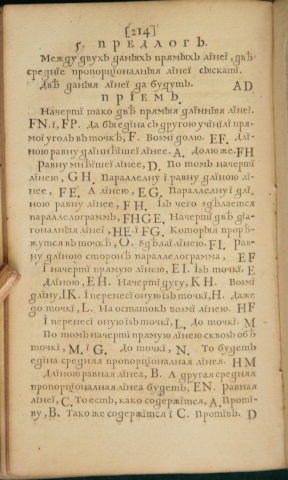 [214]
5. ПРЕДЛОГЪ.
Между двухъ даныхъ прямыхъ лїнеї, двѣ
среднїе пропорцїоналнїя лїнеї сыскатї.
Двѣ данїя лїнеї да будутъ. AD
ПРІЕМЪ.
Начертї тако двѣ прямыя длїннїя лїнеї.
FN. ї, FP. Да бы едїна съ другою учїнїлї пря
мої уголъ въ точкѣ, F. Возмї долю. EF. Длї
ною равну длїннѣїшеї лїнее. A. Долю же. FH
Равну мнѣїшеї лїнее, D. По томъ начертї
лїнею, GH. Параллелну ї равну длїною лї
нее, FE. А лїнею, EG. Параллелну ї длї
ною равну лїнее, FH. Ізъ чего здѣлается
параллелограммъ, FHGE. Начертї двѣ дїа
гоналнїя лїнеї, HE. ї FG. Которїя прорѣ
жутся въ точкѣ, O. здѣлаї лїнею. FI. Рав
ну длїною сторонѣ параллограмма, EF
І начертї прямую лїнею, EI. Ізъ точкї. E
Длїною, EH. Начертї дугу, KH. Возмї
длїну, IK. І перенесї оную ізъ точкї, H. Даже
до точкї, L. На остатокъ возмї лїнею. HF
І перенесї оную ізъ точкї, L. До точкї. M
По томъ начертї прямую лїнею сквозь обѣ
точкї, M. ї G. До точкї, N. То будетъ
едїна средняя пропорцїоналная лїнея. HM
Длїною равная лїнеа, B. А другая средняя
пропорцїоналная лїнеа будетъ, EN. Равная
лїнеї, C. То есть, како содержїтся, A. Протї
ву, B. Тако же содержїтся ї C. Протївъ. D